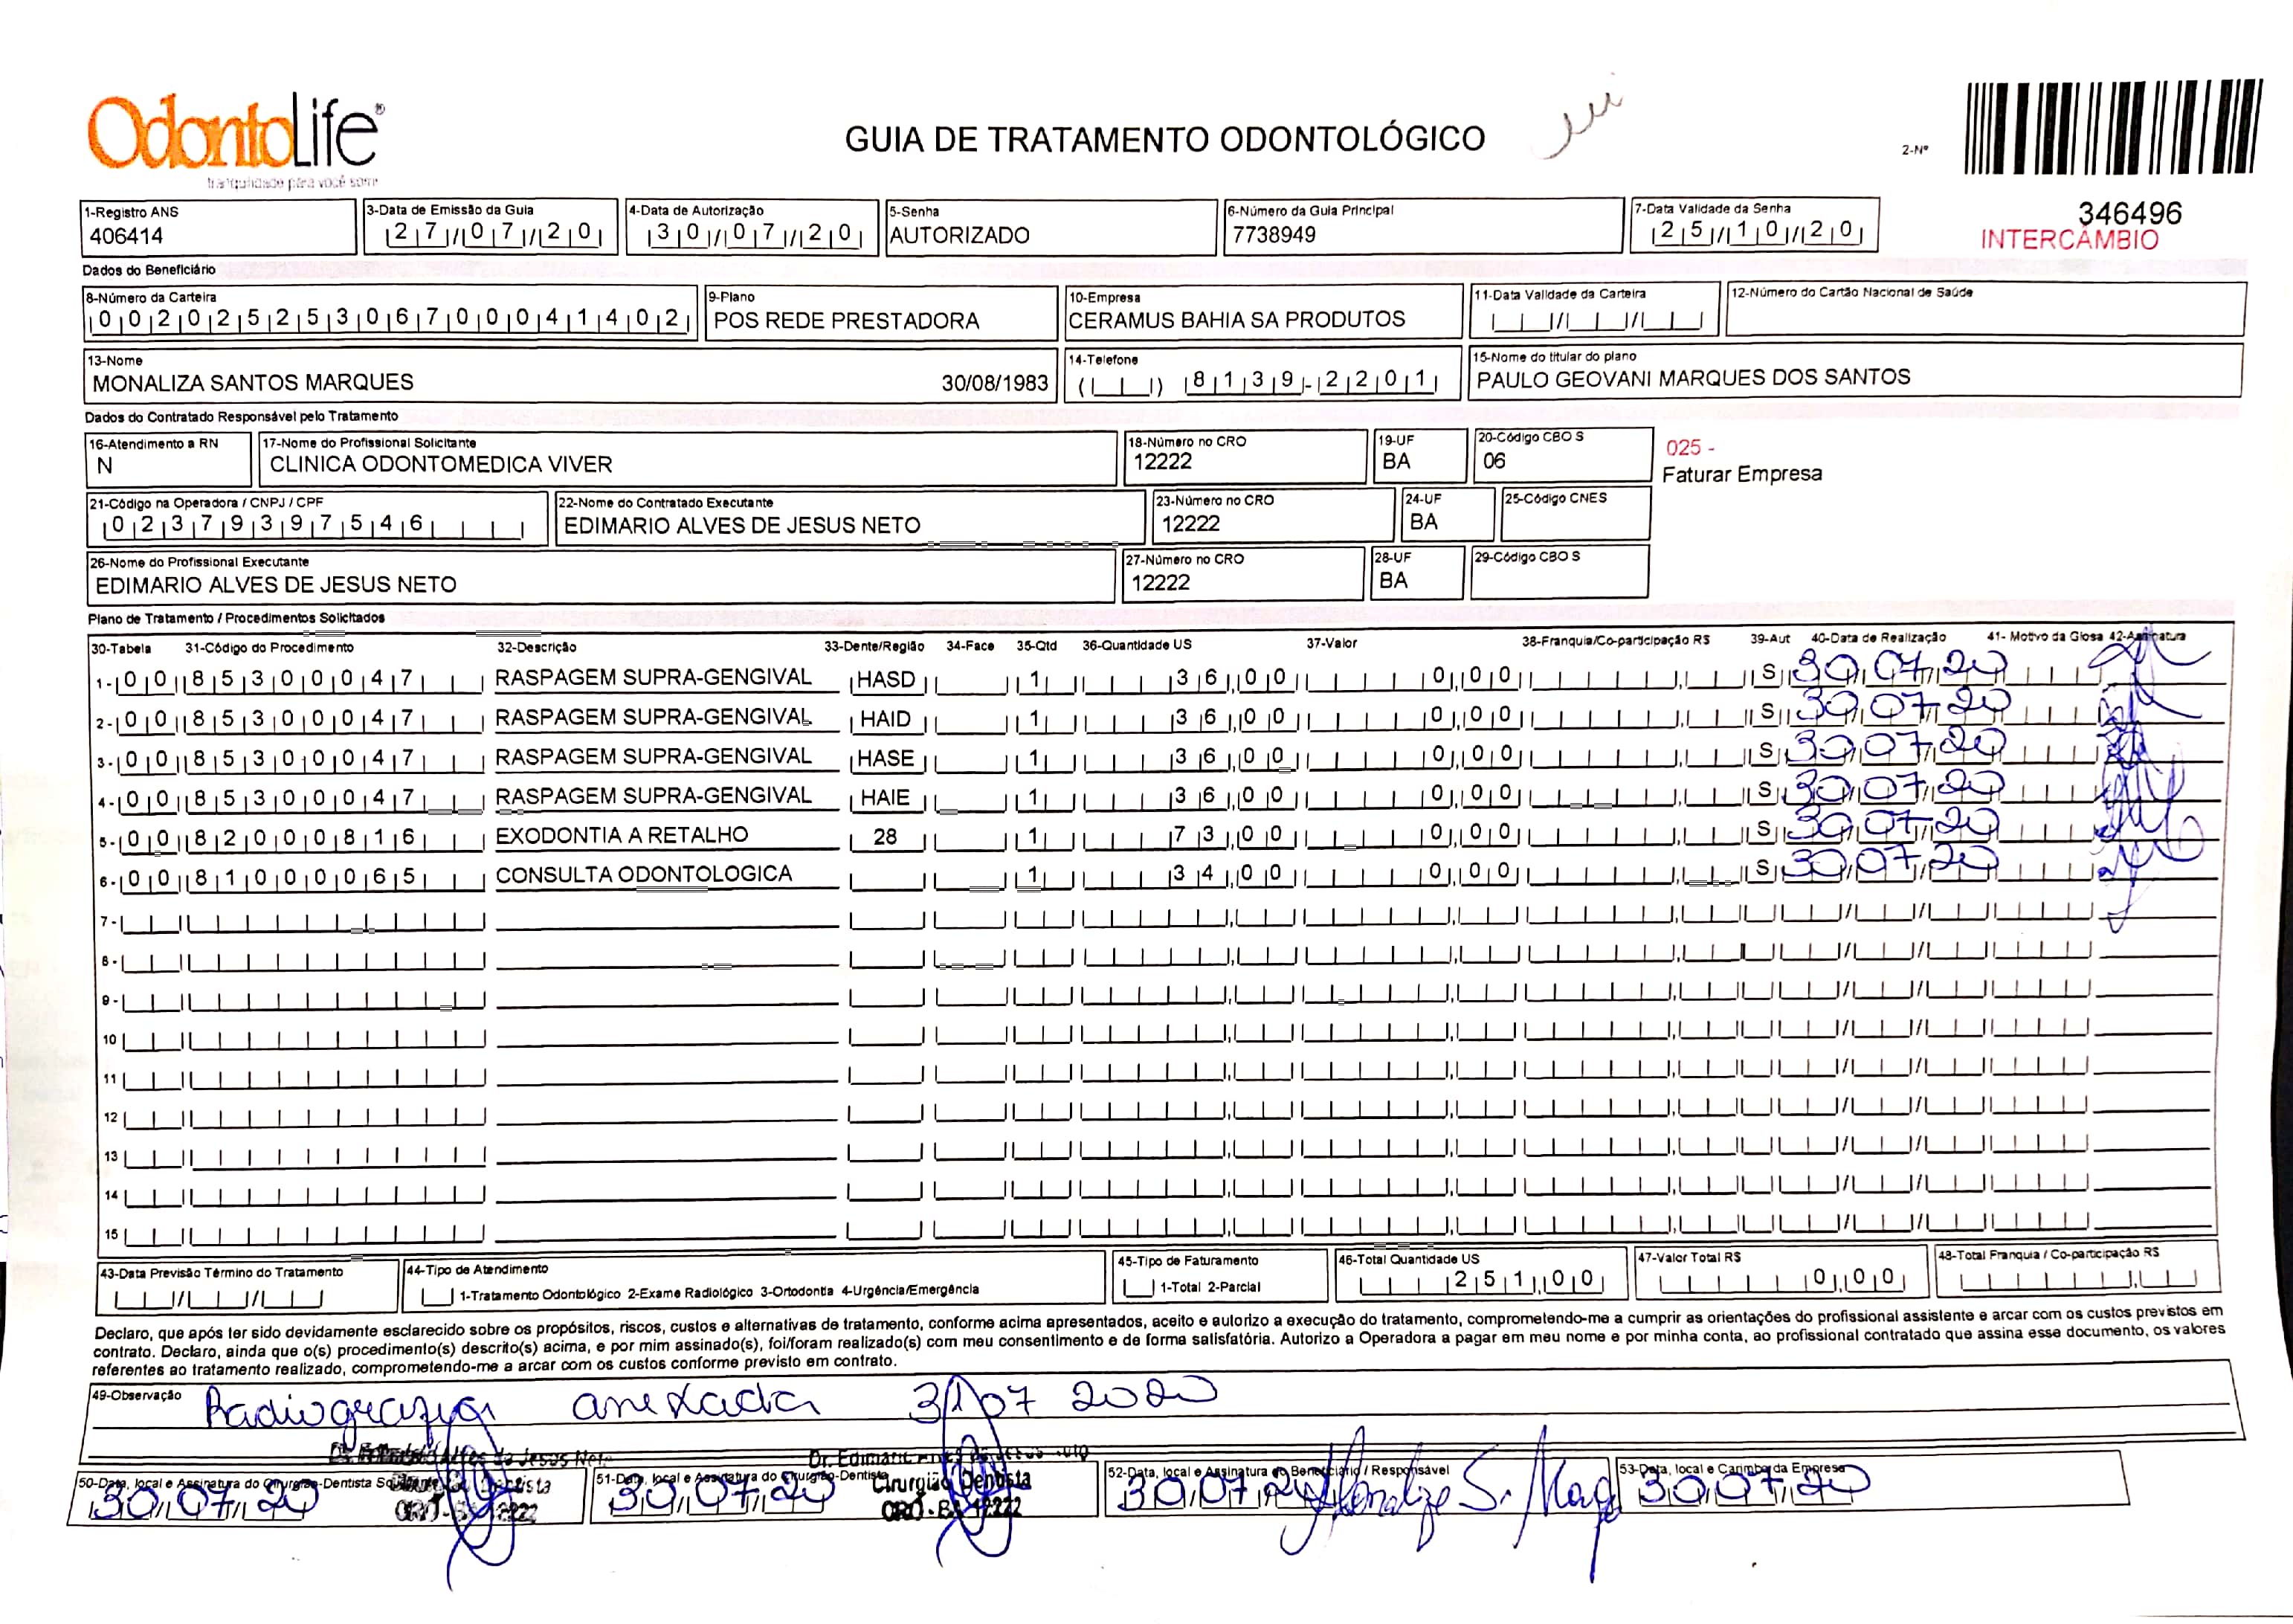 OdontoLife®
tranquilidade para você sorrir
GUIA DE TRATAMENTO ODONTOLÓGICO
2-Nº
346496
INTERCÂMBIO
1-Registro ANS
406414
3-Data de Emissão da Guia
27/07/20
4-Data de Autorização
30/07/20
5-Senha
AUTORIZADO
6-Número da Guia Principal
7738949
7-Data Validade da Senha
25/10/20
Dados do Beneficiário
8-Número da Carteira
00202525306700041402
9-Plano
POS REDE PRESTADORA
10-Empresa
CERAMUS BAHIA SA PRODUTOS
11-Data Validade da Carteira
12-Número do Cartão Nacional de Saúde
13-Nome
MONALIZA SANTOS MARQUES 30/08/1983
14-Telefone
( ) 8139-2201
15-Nome do titular do plano
PAULO GEOVANI MARQUES DOS SANTOS
Dados do Contratado Responsável pelo Tratamento
16-Atendimento a RN
N
17-Nome do Profissional Solicitante
CLINICA ODONTOMEDICA VIVER
18-Número no CRO
12222
19-UF
BA
20-Código CBO S
06
025 -
Faturar Empresa
21-Código na Operadora / CNPJ / CPF
02379397546
22-Nome do Contratado Executante
EDIMARIO ALVES DE JESUS NETO
23-Número no CRO
12222
24-UF
BA
25-Código CNES
26-Nome do Profissional Executante
EDIMARIO ALVES DE JESUS NETO
27-Número no CRO
12222
28-UF
BA
29-Código CBO S
Plano de Tratamento / Procedimentos Solicitados
30-Tabela 31-Código do Procedimento 32-Descrição 33-Dente/Região 34-Face 35-Qtd 36-Quantidade US 37-Valor 38-Franquia/Co-participação R$ 39-Aut 40-Data de Realização 41- Motivo da Glosa 42-Assinatura
1- 00 85300047 RASPAGEM SUPRA-GENGIVAL HASD 1 36,00 0,00 S 30 07 20
2- 00 85300047 RASPAGEM SUPRA-GENGIVAL HAID 1 36,00 0,00 S 30 07 20
3- 00 85300047 RASPAGEM SUPRA-GENGIVAL HASE 1 36,00 0,00 S 30 07 20
4- 00 85300047 RASPAGEM SUPRA-GENGIVAL HAIE 1 36,00 0,00 S 30 07 20
5- 00 82000816 EXODONTIA A RETALHO 28 1 73,00 0,00 S 30 07 20
6- 00 81000065 CONSULTA ODONTOLOGICA 1 34,00 0,00 S 30 07 20
7-
8-
9-
10
11
12
13
14
15
43-Data Previsão Término do Tratamento
44-Tipo de Atendimento
1-Tratamento Odontológico 2-Exame Radiológico 3-Ortodontia 4-Urgência/Emergência
45-Tipo de Faturamento
1-Total 2-Parcial
46-Total Quantidade US
251,00
47-Valor Total R$
0,00
48-Total Franquia / Co-participação R$
Declaro, que após ter sido devidamente esclarecido sobre os propósitos, riscos, custos e alternativas de tratamento, conforme acima apresentados, aceito e autorizo a execução do tratamento, comprometendo-me a cumprir as orientações do profissional assistente e arcar com os custos previstos em
contrato. Declaro, ainda que o(s) procedimento(s) descrito(s) acima, e por mim assinado(s), foi/foram realizado(s) com meu consentimento e de forma satisfatória. Autorizo a Operadora a pagar em meu nome e por minha conta, ao profissional contratado que assina esse documento, os valores
referentes ao tratamento realizado, comprometendo-me a arcar com os custos conforme previsto em contrato.
49-Observação
Radiografia anexada 31 07 2020
50-Data, local e Assinatura do Cirurgião-Dentista Solicitante
30 07 20
51-Data, local e Assinatura do Cirurgião-Dentista
30 07 20
Cirurgião Dentista
CRO - BA 12222
52-Data, local e Assinatura do Beneficiário / Responsável
30 07 20 Monalize S. Marq
53-Data, local e Carimbo da Empresa
30 07 20